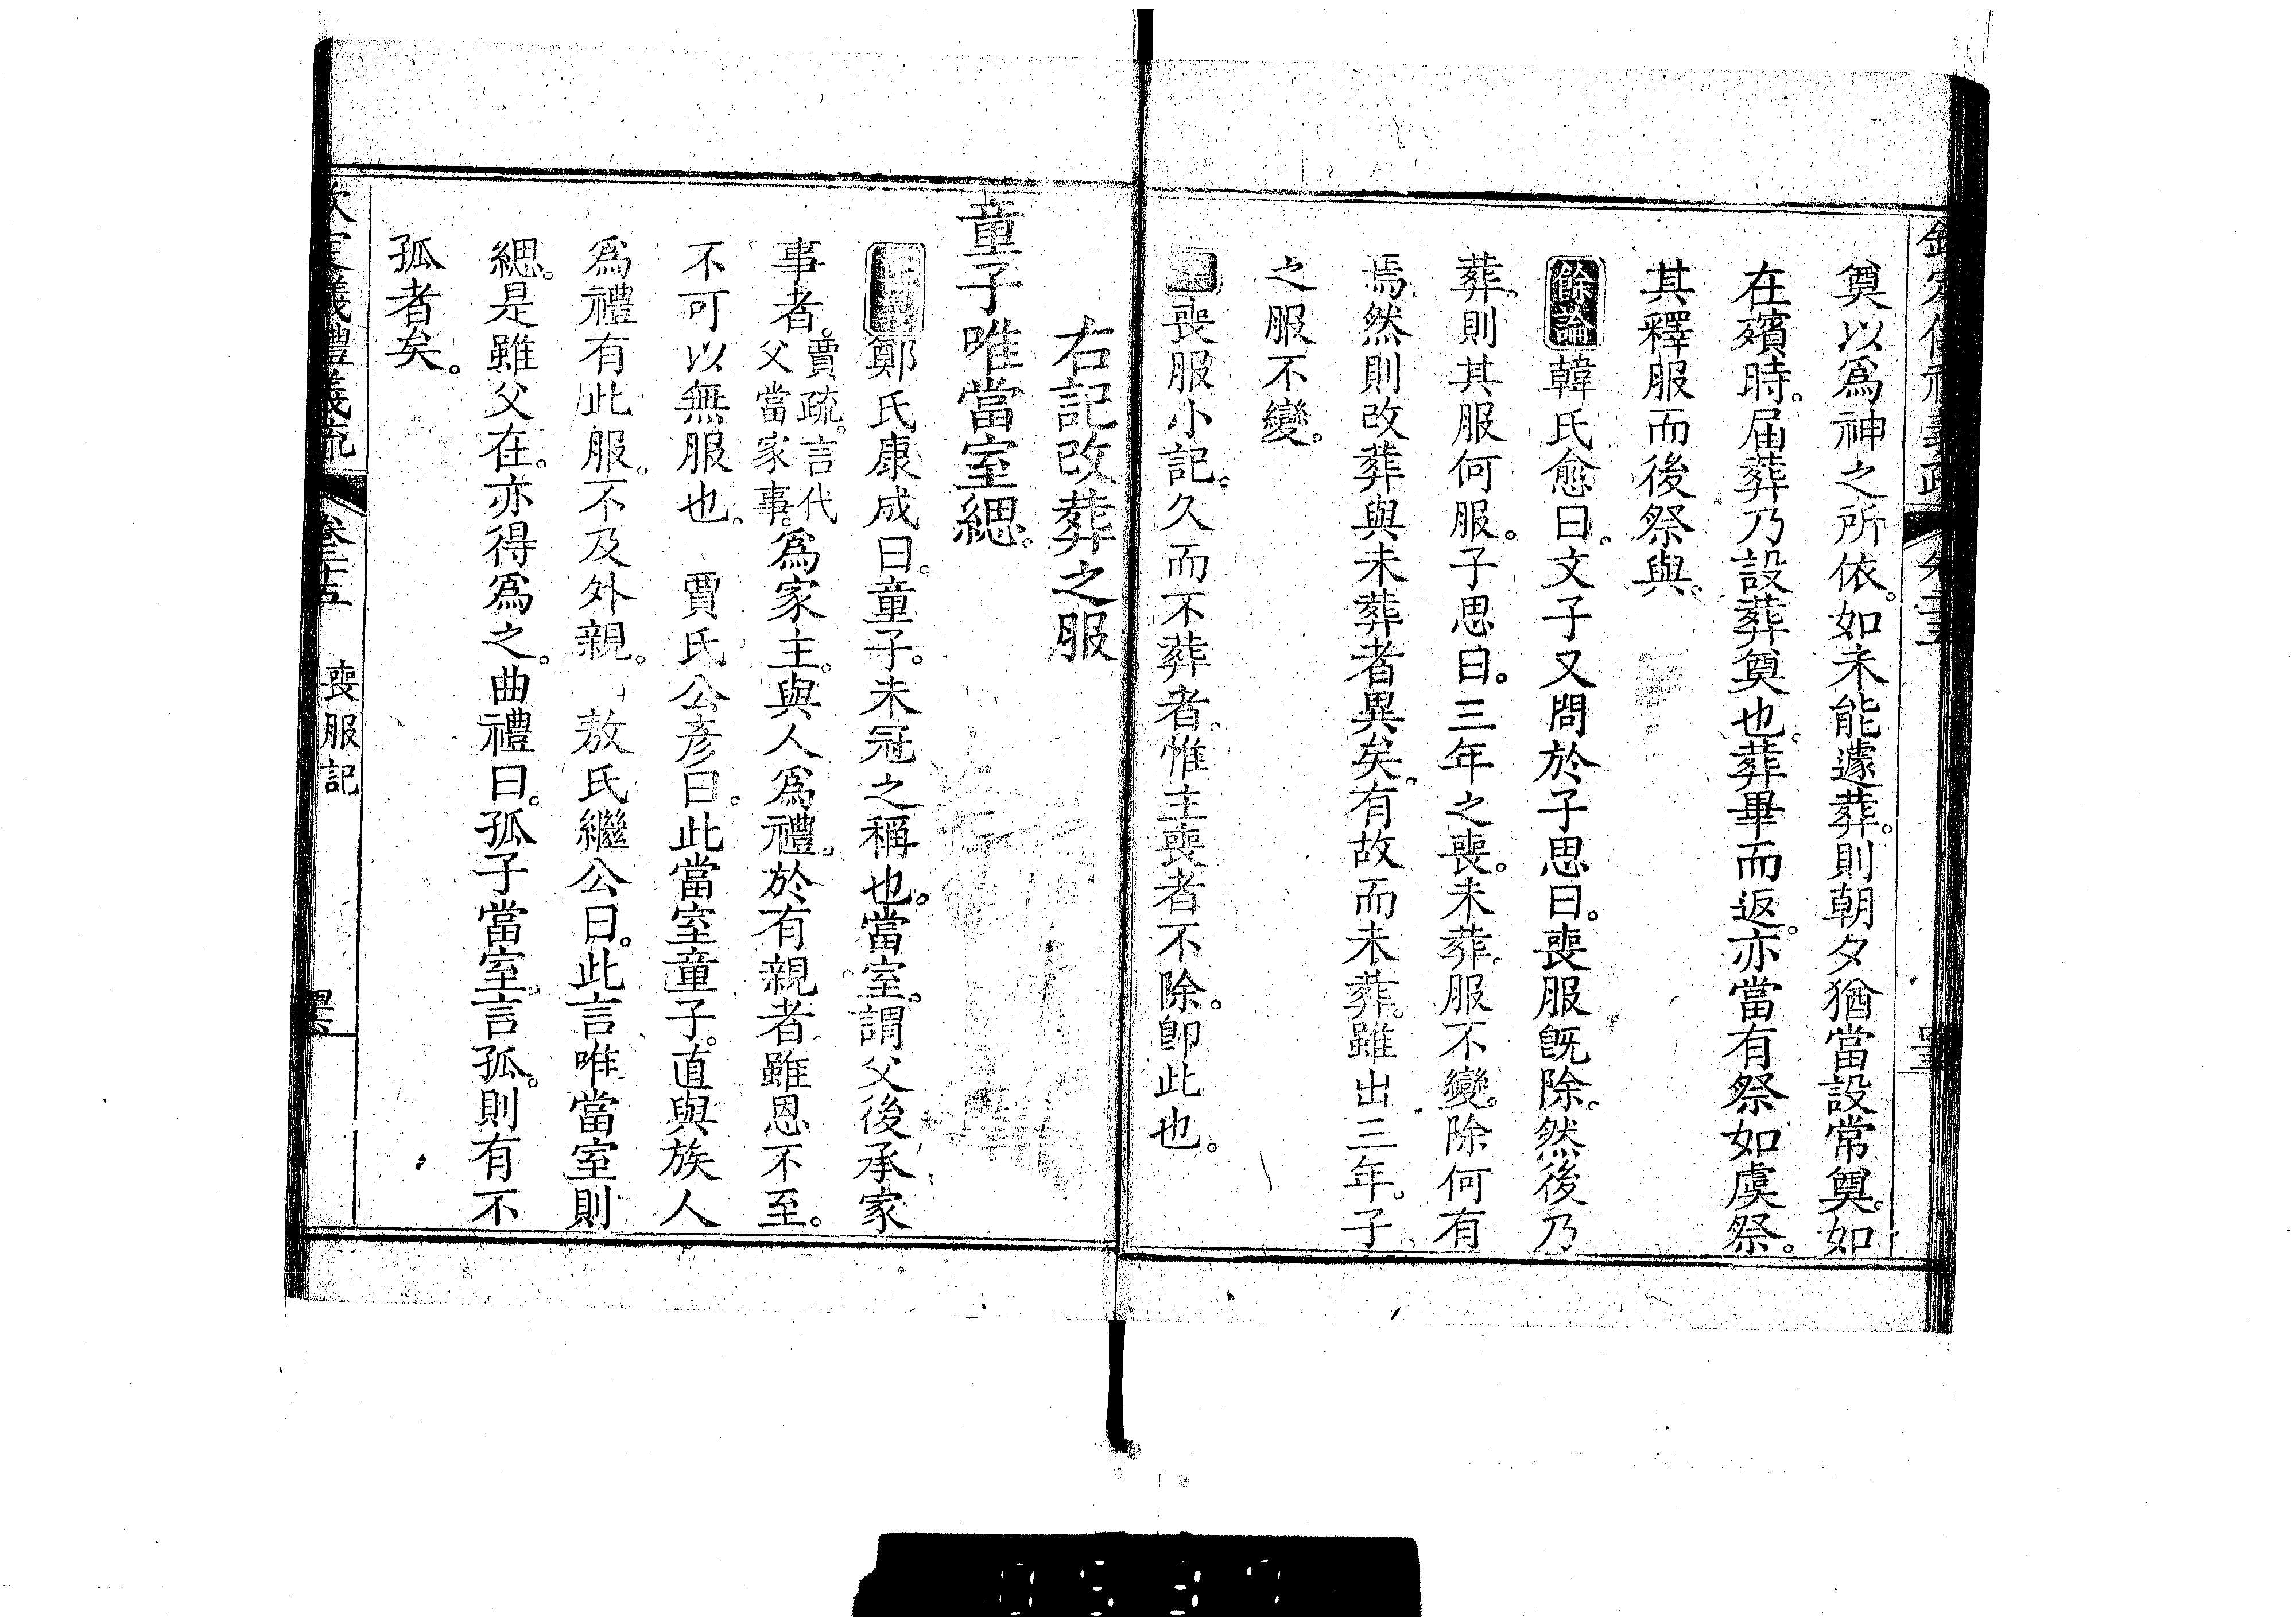 奠以爲神之所依。如未能遽葬。則朝夕猶當設常奠。如
在殯時。届葬乃設葬奠也。葬畢而返。亦當有祭如虞祭。
其釋服而後祭與。
餘論韓氏愈曰。文子又問於子思曰。喪服旣除。然後乃
葬。則其服何服。子思曰。三年之喪。未葬。服不變。除何有
焉。然則改葬與未葬者異矣。有故而未葬。雖出三年。子
之服不變。
喪服小記。久而不葬者。惟主喪者不除。卽此也。
右記改葬之服
童子唯當室緦。
鄭氏康成曰。童子。未冠之稱也。當室。謂父後承家
事者。賈疏。言代父當家事。爲家主。與人爲禮。於有親者。雖恩不至。
不可以無服也。 賈氏公彥曰。此當室童子。直與族人
爲禮有此服。不及外親。 敖氏繼公曰。此言唯當室則
緦。是雖父在。亦得爲之。曲禮曰。孤子當室。言孤。則有不
孤者矣。
欽定儀禮義疏 卷二十五 喪服記